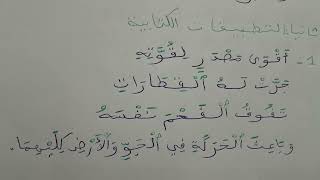 ثانيا: التطبيقات الكتابية
1- أَقْوَى مَصْدَرٍ لِقُوَّتِهِ
جَرَّتْ لَهُ ٱلْقِطَارَاتِ
تَفُوقُ ٱلْفَحْمَ نَفْسَهُ
وَبَاعِثَ ٱلْحَرَكَةِ فِي ٱلْجَوِّ وَٱلْأَرْضِ كِلَيْهِمَا.